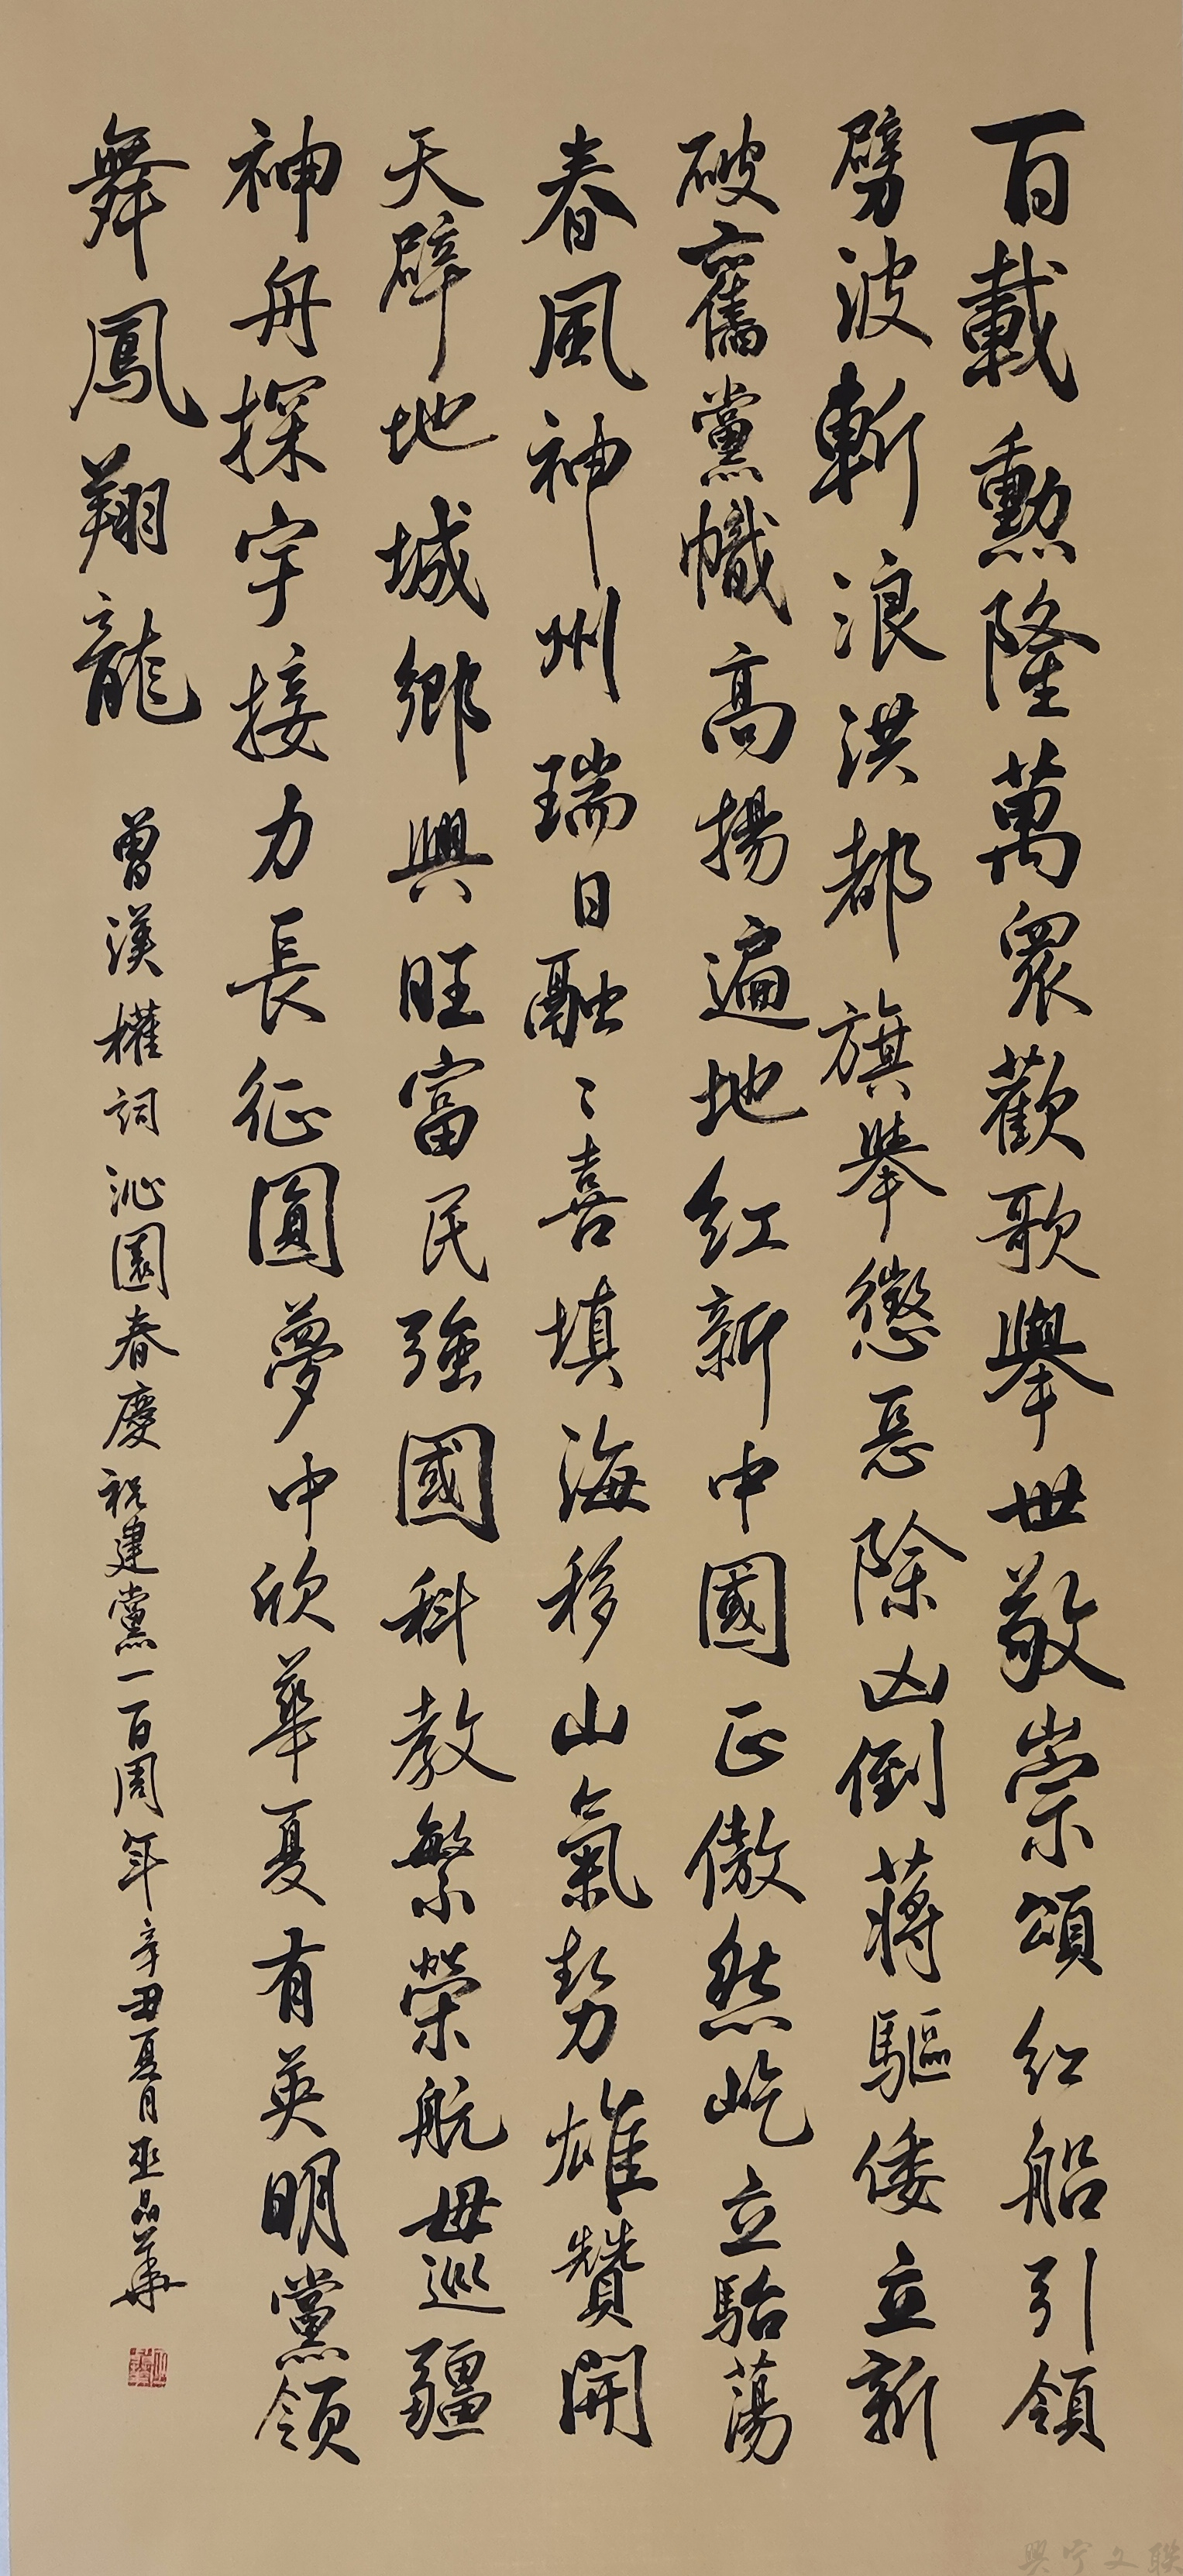 百載勳隆萬眾歡歌舉世敬崇頌紅船引領
劈波斬浪洪都旗舉懲惡除凶倒蔣驅倭立新
破舊黨幟高揚遍地紅新中國正傲然屹立駘蕩
春風神州瑞日融〻喜填海移山氣勢雄贊開
天辟地城鄉興旺富民強國科教繁榮航母巡疆
神舟探宇接力長征圓夢中欣華夏有英明黨領
舞鳳翔龍
曾漢權詞沁園春慶祝建黨一百周年辛丑夏月巫晶華
興宁文联